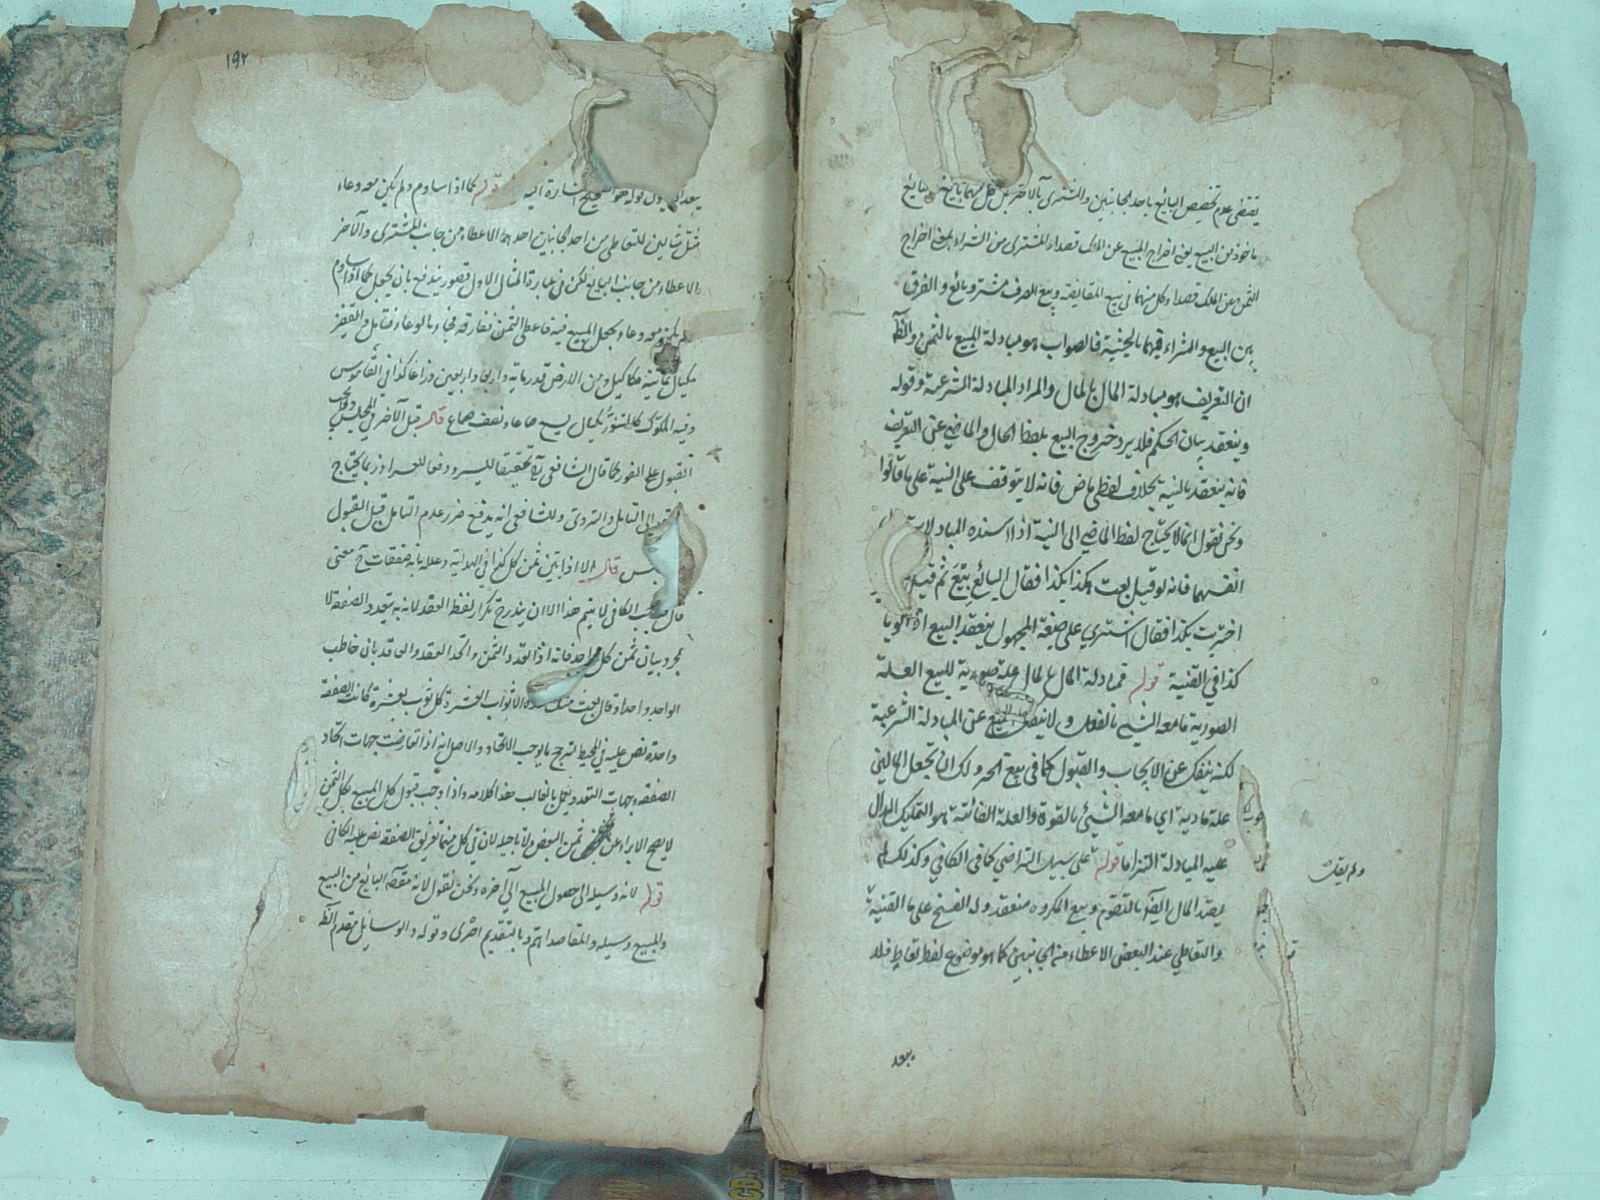 يقتضي عدم تخصيص البائع باحد الجانبين والمشتري بالآخر بل كل منهما بائع
ماخوذ من البيع يعني اخراج المبيع عن الملك قصدا والمشتري من الشراء يعني اخراج
الثمن عن الملك قصدا وكل منهما في بيع المقايضة وبيع الصرف مشتر وبائع والفرق
بين البيع والشراء فيهما بالحيثية فالصواب هو مبادلة المبيع بالثمن والظ
ان التعريف هو مبادلة المال بالمال والمراد المبادلة الشرعية وقوله
وينعقد بيان الحكم فلا يرد خروج البيع بلفظ الحال والماضي عن التعريف
فانه ينعقد بالنية بخلاف لفظ ماض فانه لا يتوقف على النية على ما قالوا
ونحن نقول انما لا يحتاج لفظ الماضي الى النية اذا اسنده المبادلا
انفسهما فانه لو قيل بعت هكذا بكذا فقال البائع بِيعَ ثم قيل
اخترت بكذا فقال اشتري على صيغة المجهول ينعقد البيع اذا نويا
كذا في القنية قوله فمبادلة المال بالمال علة صورية للبيع العلة
الصورية ما معه الشيء بالفعل ولا ينفك البيع عن المبادلة الشرعية
لكنه ينفك عن الايجاب والقبول كما في بيع الحر ولك ان تجعل المالين
علة مادية اي ما معه الشيئ بالقوة والعلة الغائية هو التمليك الدال
عليه المبادلة التزاما قوله على سبيل التراضي كما في الكافي وكذلك لم
ولم يقل
يقيد المال ايضا بالتقوم وبيع المكروه منعقد وله الفسخ على ما القنية
والتعاطي عند البعض الاعطاء من الجانبين كما هو موضوع لفظ تعاطٍ فلا
بعد
١٩٢
قوله كما اذا ساوم ولم يكن معه وعاء
مثل مثالين للتعاطي من احد الجانبين احدهما الاعطاء من جانب المشتري والآخر
الاعطاء من جانب البايع لكن في عبارة المثال الاول قصور يندفع بان يجعل كما اذا ساوم
ولم يكن معه وعاء يجعل المبيع فيه فاعطى الثمن ففارقه فجاء بالوعاء فتامل والقفيز
مكيال ثمانية مكاكيل ومن الارض قدر ماية واربع واربعين ذراعا كذا في القاموس
وفيه المكوك كالتنور مكيال يسع صاعا ونصف صاع قال قبل الآخر في المجلس
القبول على الفور كما قال الشافعي رح تحقيقا لليسر ودفعا للعسر اذ ربما يحتاج
الى التامل والتروي وللشافعي انه يدفع ضرر عدم التامل قبل القبول
قال الا اذا بين ثمن كل كذا في الهداية وعلله بانه صفقات معنى
قال صاحب الكافي لا يتم هذا الا ان يندرج تكرار لفظ العقد لانه به يتعدد الصفقة لا
بمجرد بيان ثمن كل واحد فانه اذا اتحد الثمن واتحد العقد والعاقد بان خاطب
الواحد واحدا وقال بعت منك هذه الاثواب العشرة كل ثوب بعشرة كانت الصفقة
واحدة نص عليه في المحيط لترجح ما يوجب الاتحاد والاصل انه اذا تعارضت جهات اتحاد
الصفقة وجهات التعدد يعمل بالغالب هذا كلامه واذا وجب قبول كل المبيع بكل الثمن
لا يصح الابراء عن ثمن البعض ولا تاجيله لان في كل منهما تفريق الصفقة نص عليه الكافي
قوله لانه وسيلة الى حصول المبيع الى آخره ونحن نقول لانه مقصد البائع من البيع
والمبيع وسيلة والمقاصد اهم وبالتقديم احرى وقوله والوسائل يتقدم الظ